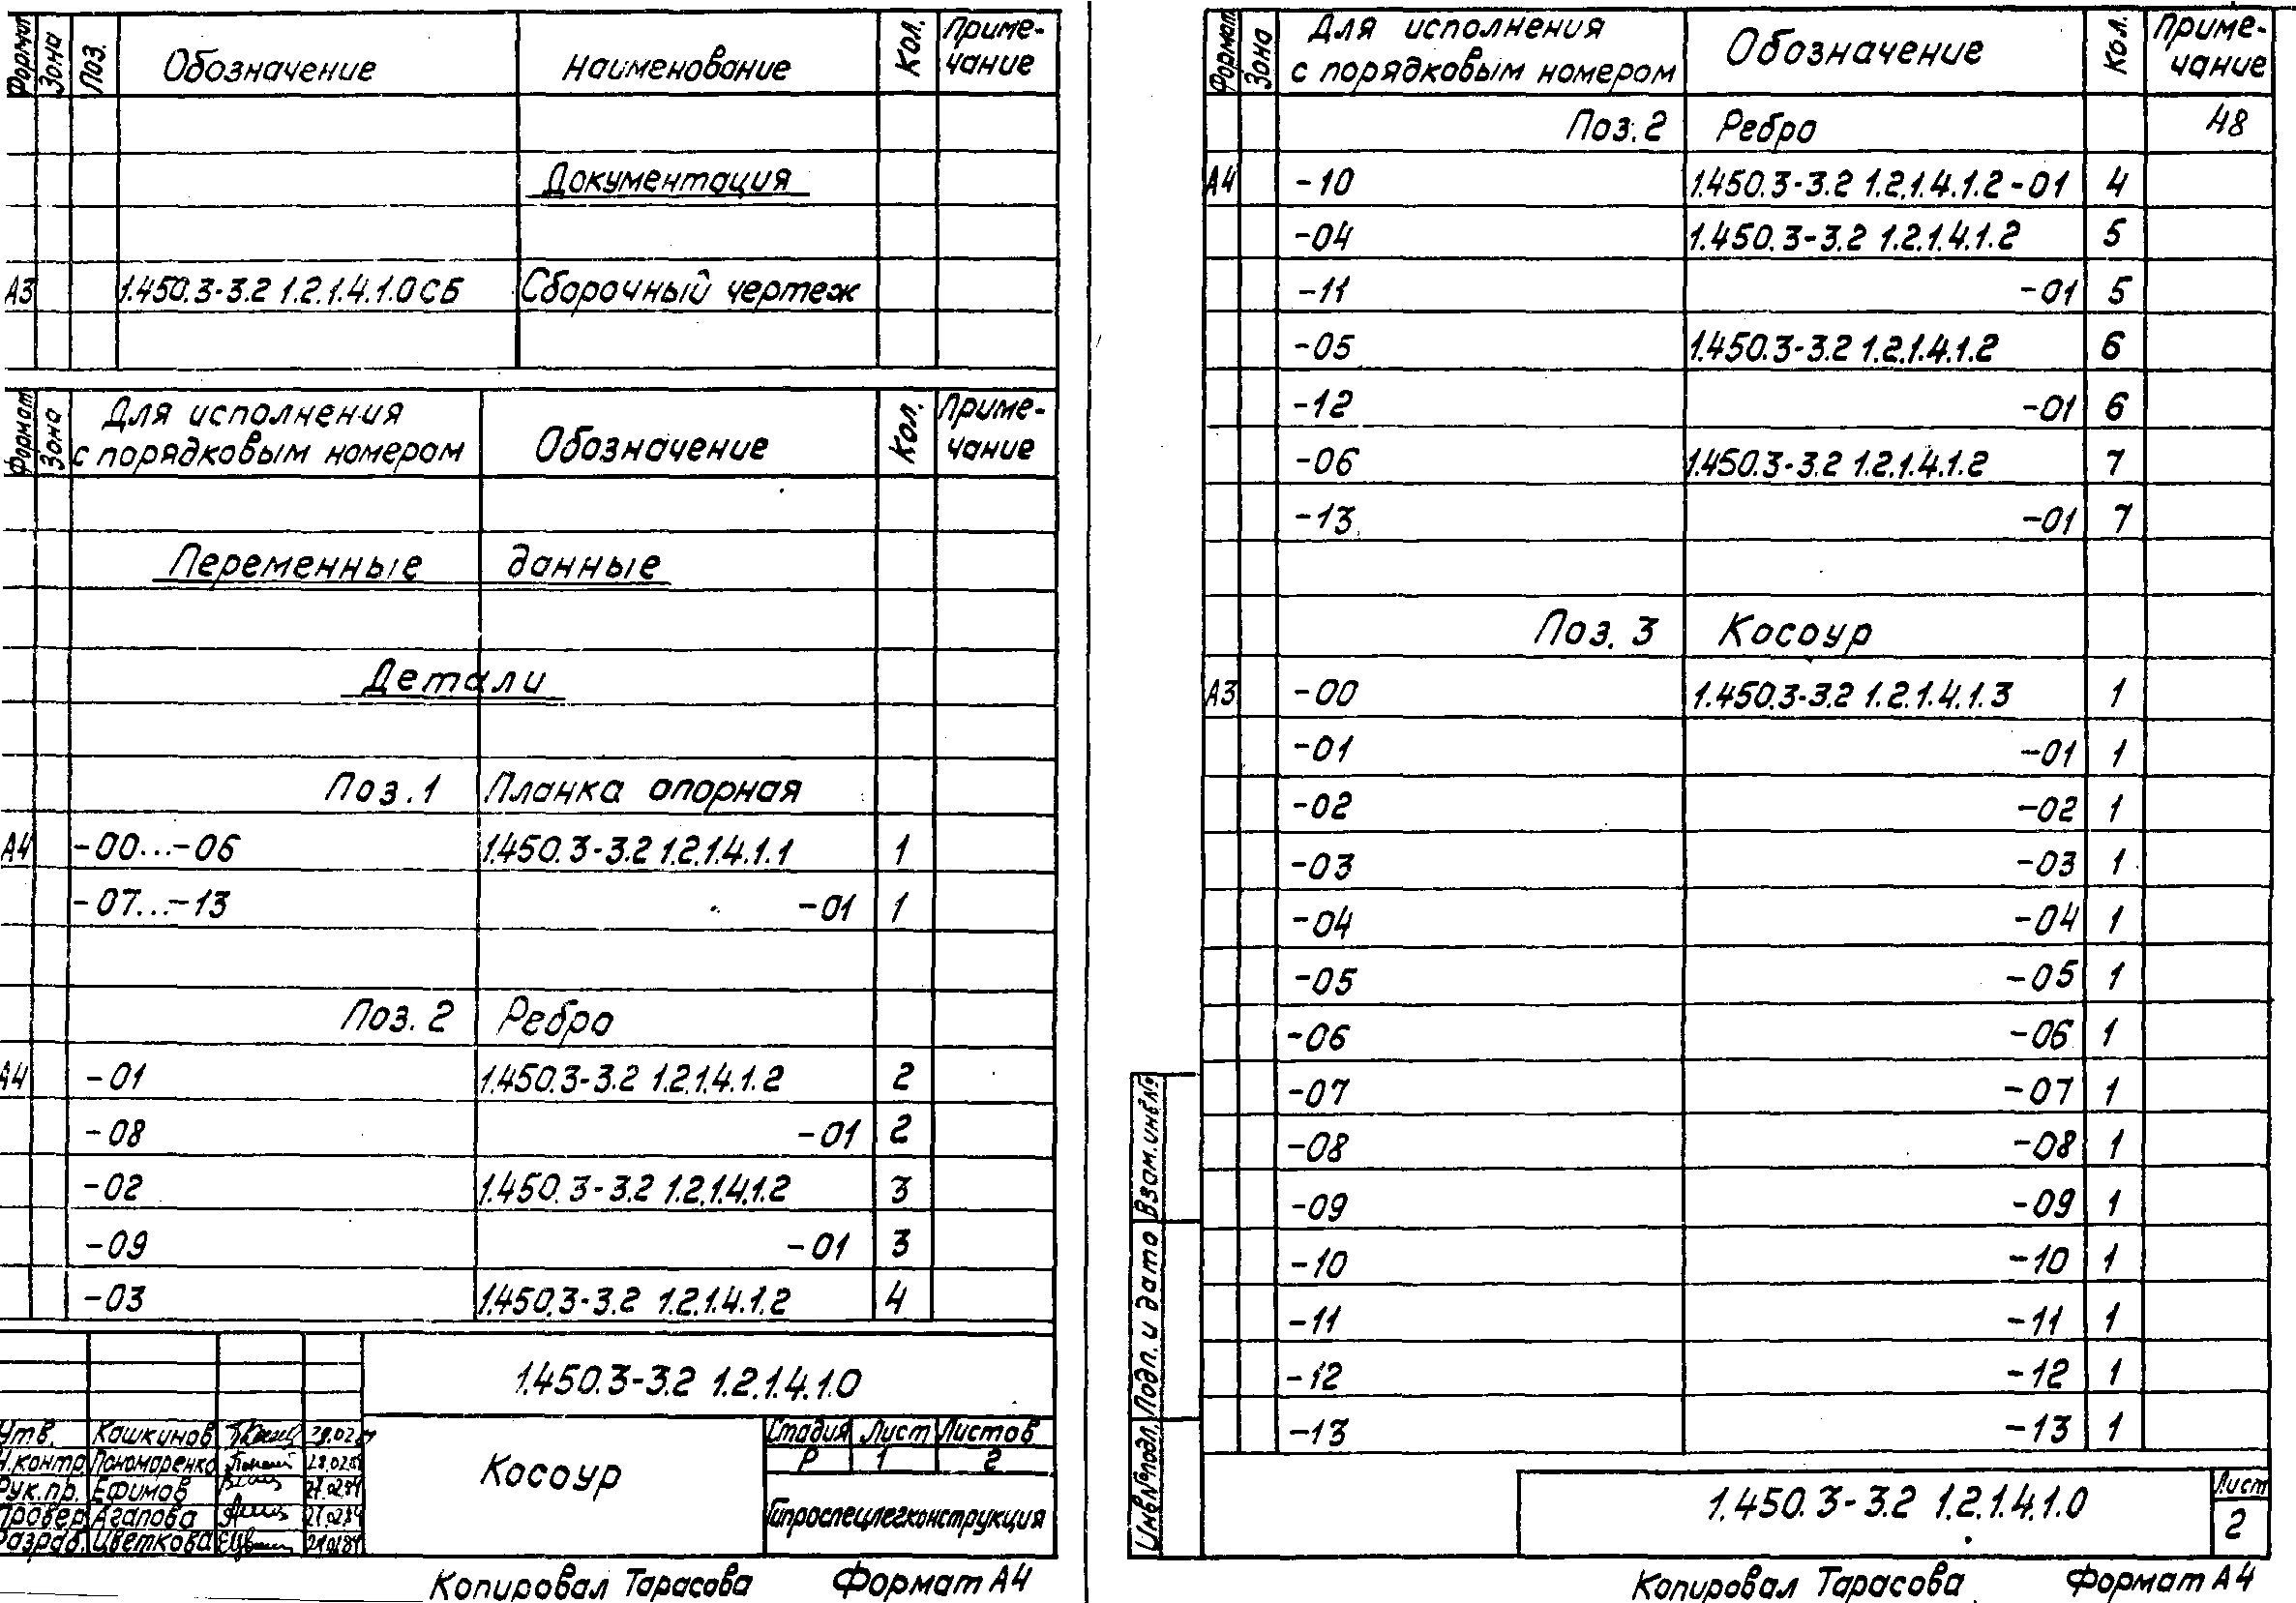 Формат Зона Поз. Обозначение Наименование Кол. Приме-
чание
Документация
А3 1.450.3-3.2 1.2.1.4.1.0 СБ Сборочный чертеж
Формат Зона Для исполнения
с порядковым номером Обозначение Кол. Приме-
чание
Переменные данные
Детали
Поз.1 Планка опорная
А4 -00...-06 1.450.3-3.2 1.2.1.4.1.1 1
-07...-13 -01 1
Поз.2 Ребро
А4 -01 1.450.3-3.2 1.2.1.4.1.2 2
-08 -01 2
-02 1.450.3-3.2 1.2.1.4.1.2 3
-09 -01 3
-03 1.450.3-3.2 1.2.1.4.1.2 4
1.450.3-3.2 1.2.1.4.1.0
Утв. Кашкинов
Н.контр. Пономаренко
Рук.пр. Ефимов
Провер. Агапова
Разраб. Цветкова
Косоур
Стадия Лист Листов
Р 1 2
Гипроспецлегконструкция
Копировал Тарасова Формат А4
Формат Зона Для исполнения
с порядковым номером Обозначение Кол. Приме-
чание
Поз.2 Ребро 48
А4 -10 1.450.3-3.2 1.2.1.4.1.2-01 4
-04 1.450.3-3.2 1.2.1.4.1.2 5
-11 -01 5
-05 1.450.3-3.2 1.2.1.4.1.2 6
-12 -01 6
-06 1.450.3-3.2 1.2.1.4.1.2 7
-13 -01 7
Поз. 3 Косоур
А3 -00 1.450.3-3.2 1.2.1.4.1.3 1
-01 -01 1
-02 -02 1
-03 -03 1
-04 -04 1
-05 -05 1
-06 -06 1
-07 -07 1
-08 -08 1
-09 -09 1
-10 -10 1
-11 -11 1
-12 -12 1
-13 -13 1
Инв№подл. Подп. и дата Взам.инв№
1.450.3-3.2 1.2.1.4.1.0
Лист
2
Копировал Тарасова Формат А4